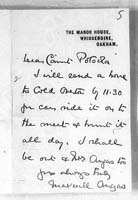 5
THE MANOR HOUSE,
WHISSENDINE,
OAKHAM.
Dear Count Potocki
I will send a horse
to Cold Overton by 11.30
you can ride it on to
the meet & hunt it
all day. I shall
be out & Mrs Angas too
yrs always truly
Maxwell Angas